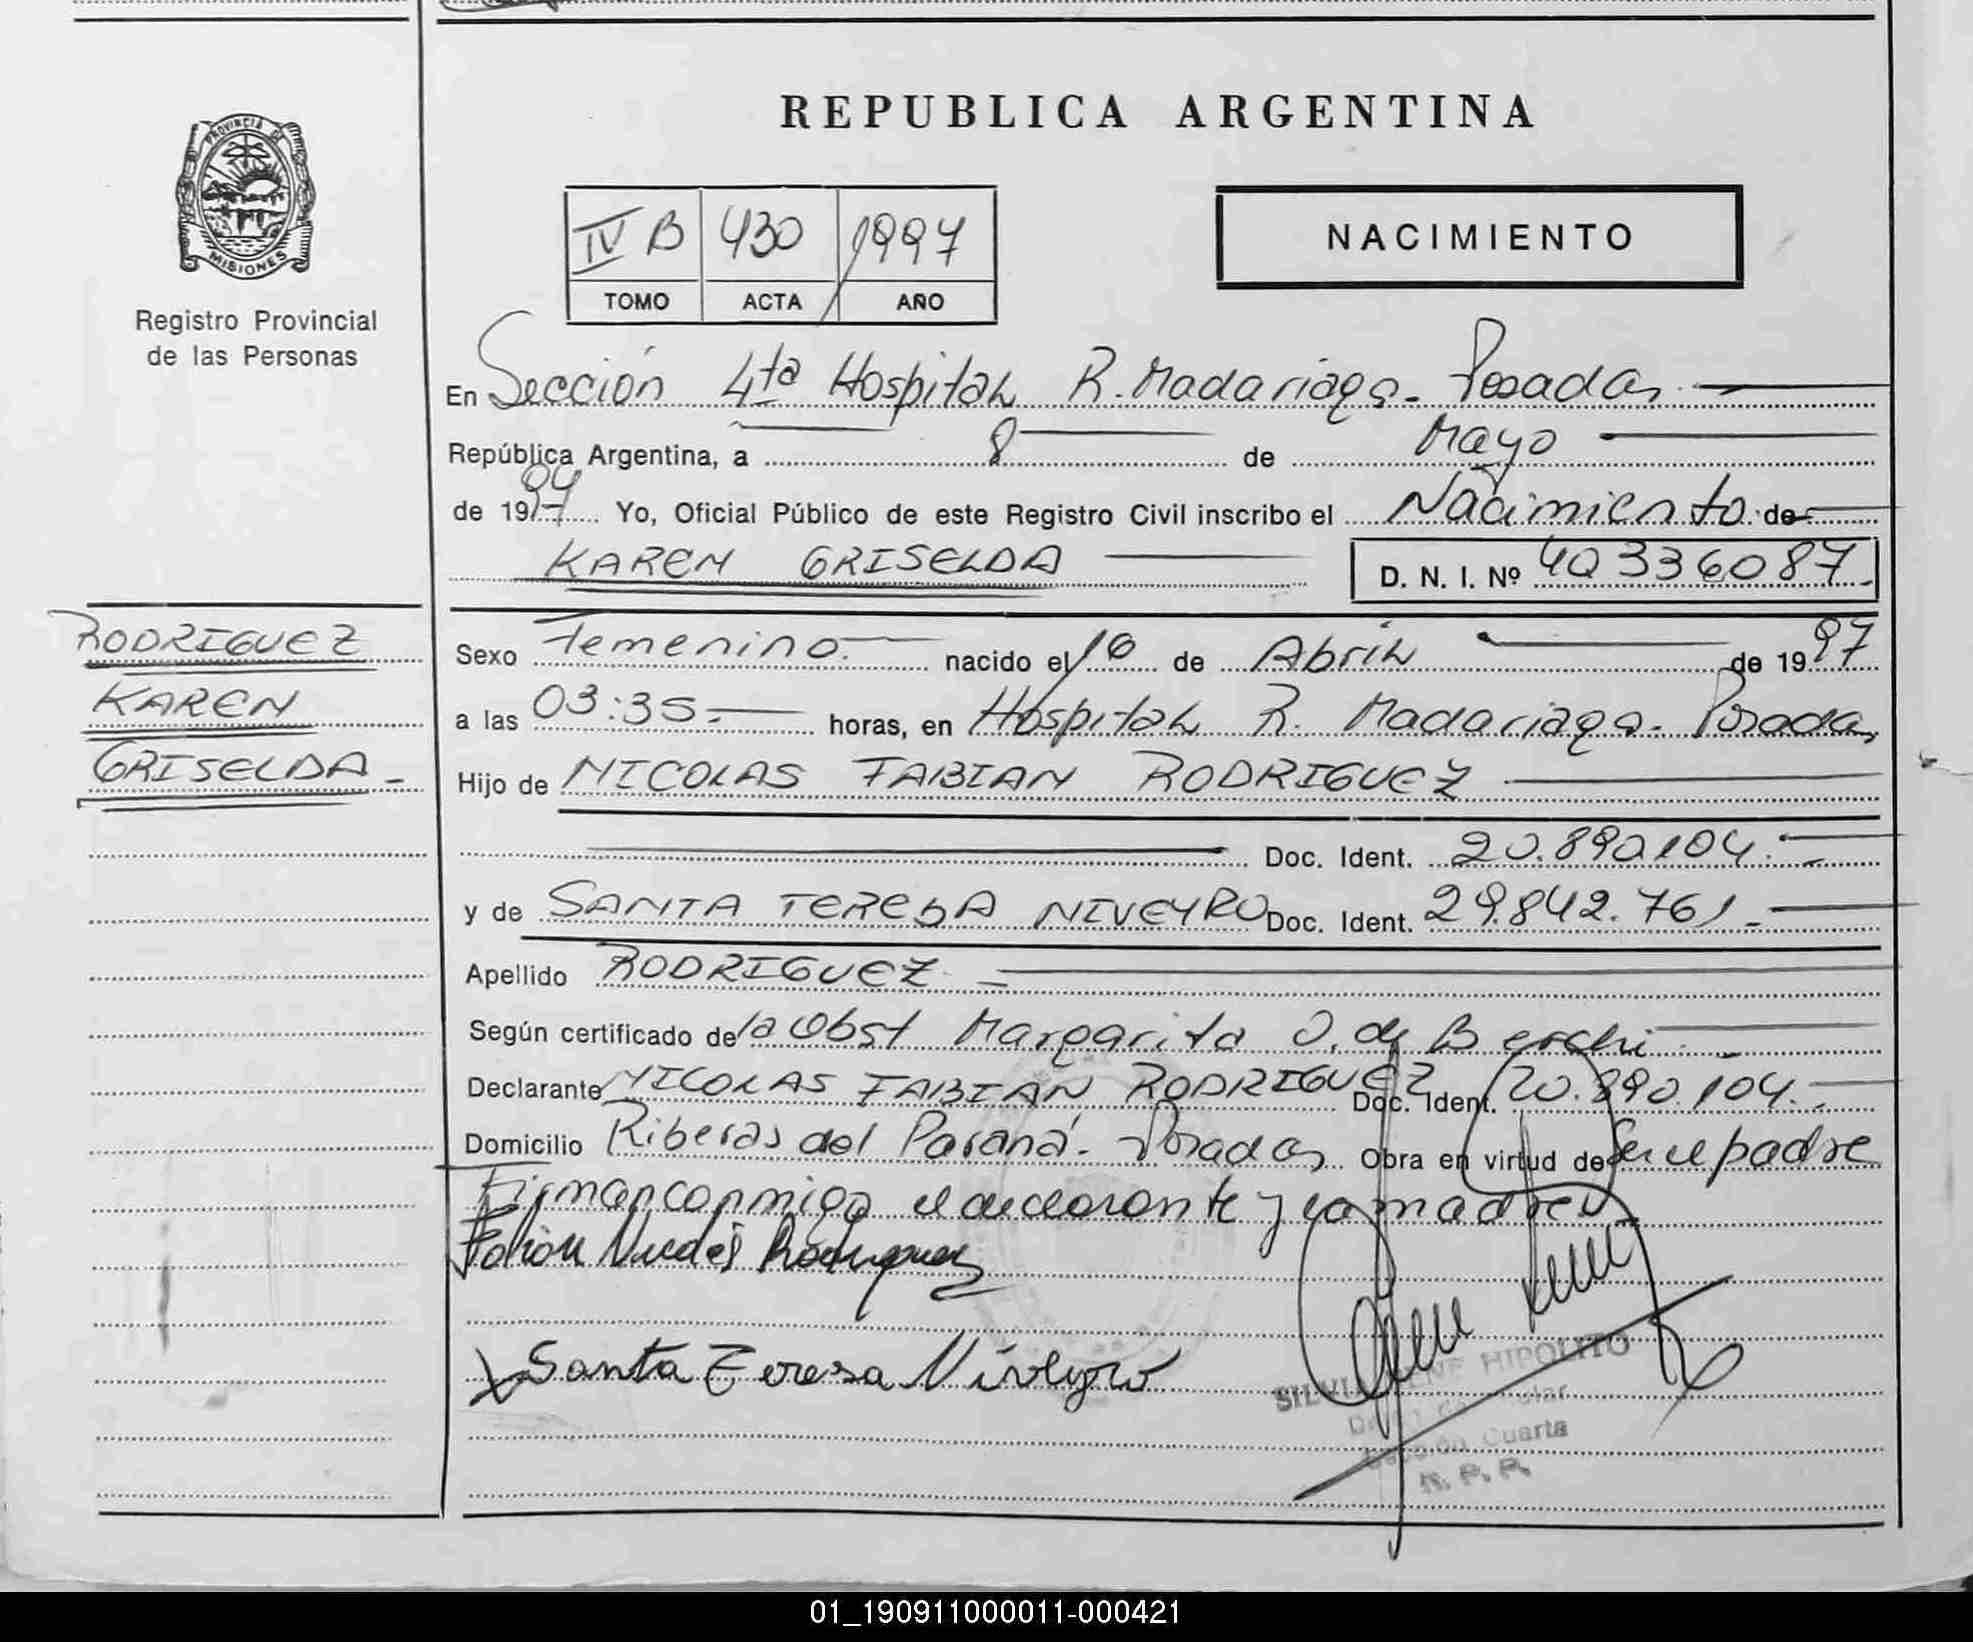 REPUBLICA ARGENTINA
PROVINCIA DE
MISIONES
Registro Provincial
de las Personas
IV B 430 1997
TOMO ACTA AÑO
NACIMIENTO
En Sección 4ta Hospital R. Madariaga - Posadas
República Argentina, a 8 de Mayo
de 1997 Yo, Oficial Público de este Registro Civil inscribo el Nacimiento de
KAREN GRISELDA D. N. I. Nº 40336087
RODRIGUEZ
KAREN
GRISELDA -
Sexo Femenino nacido el 16 de Abril de 1997
a las 03:35 horas, en Hospital R. Madariaga - Posadas
Hijo de NICOLAS FABIAN RODRIGUEZ
Doc. Ident. 20.890.104
y de SANTA TERESA NIVEYRO Doc. Ident. 29.842.761
Apellido RODRIGUEZ
Según certificado de la Obst Margarita O. de Berchi
Declarante NICOLAS FABIAN RODRIGUEZ Doc. Ident. 20.890.104
Domicilio Riberas del Paraná - Posadas Obra en virtud de padre
Firman conmigo el declarante y la madre
Fabian Nicolás Rodriguez
Santa Teresa Niveyro
HIPOLITO
Cuarta
R. P. P.
01_190911000011-000421